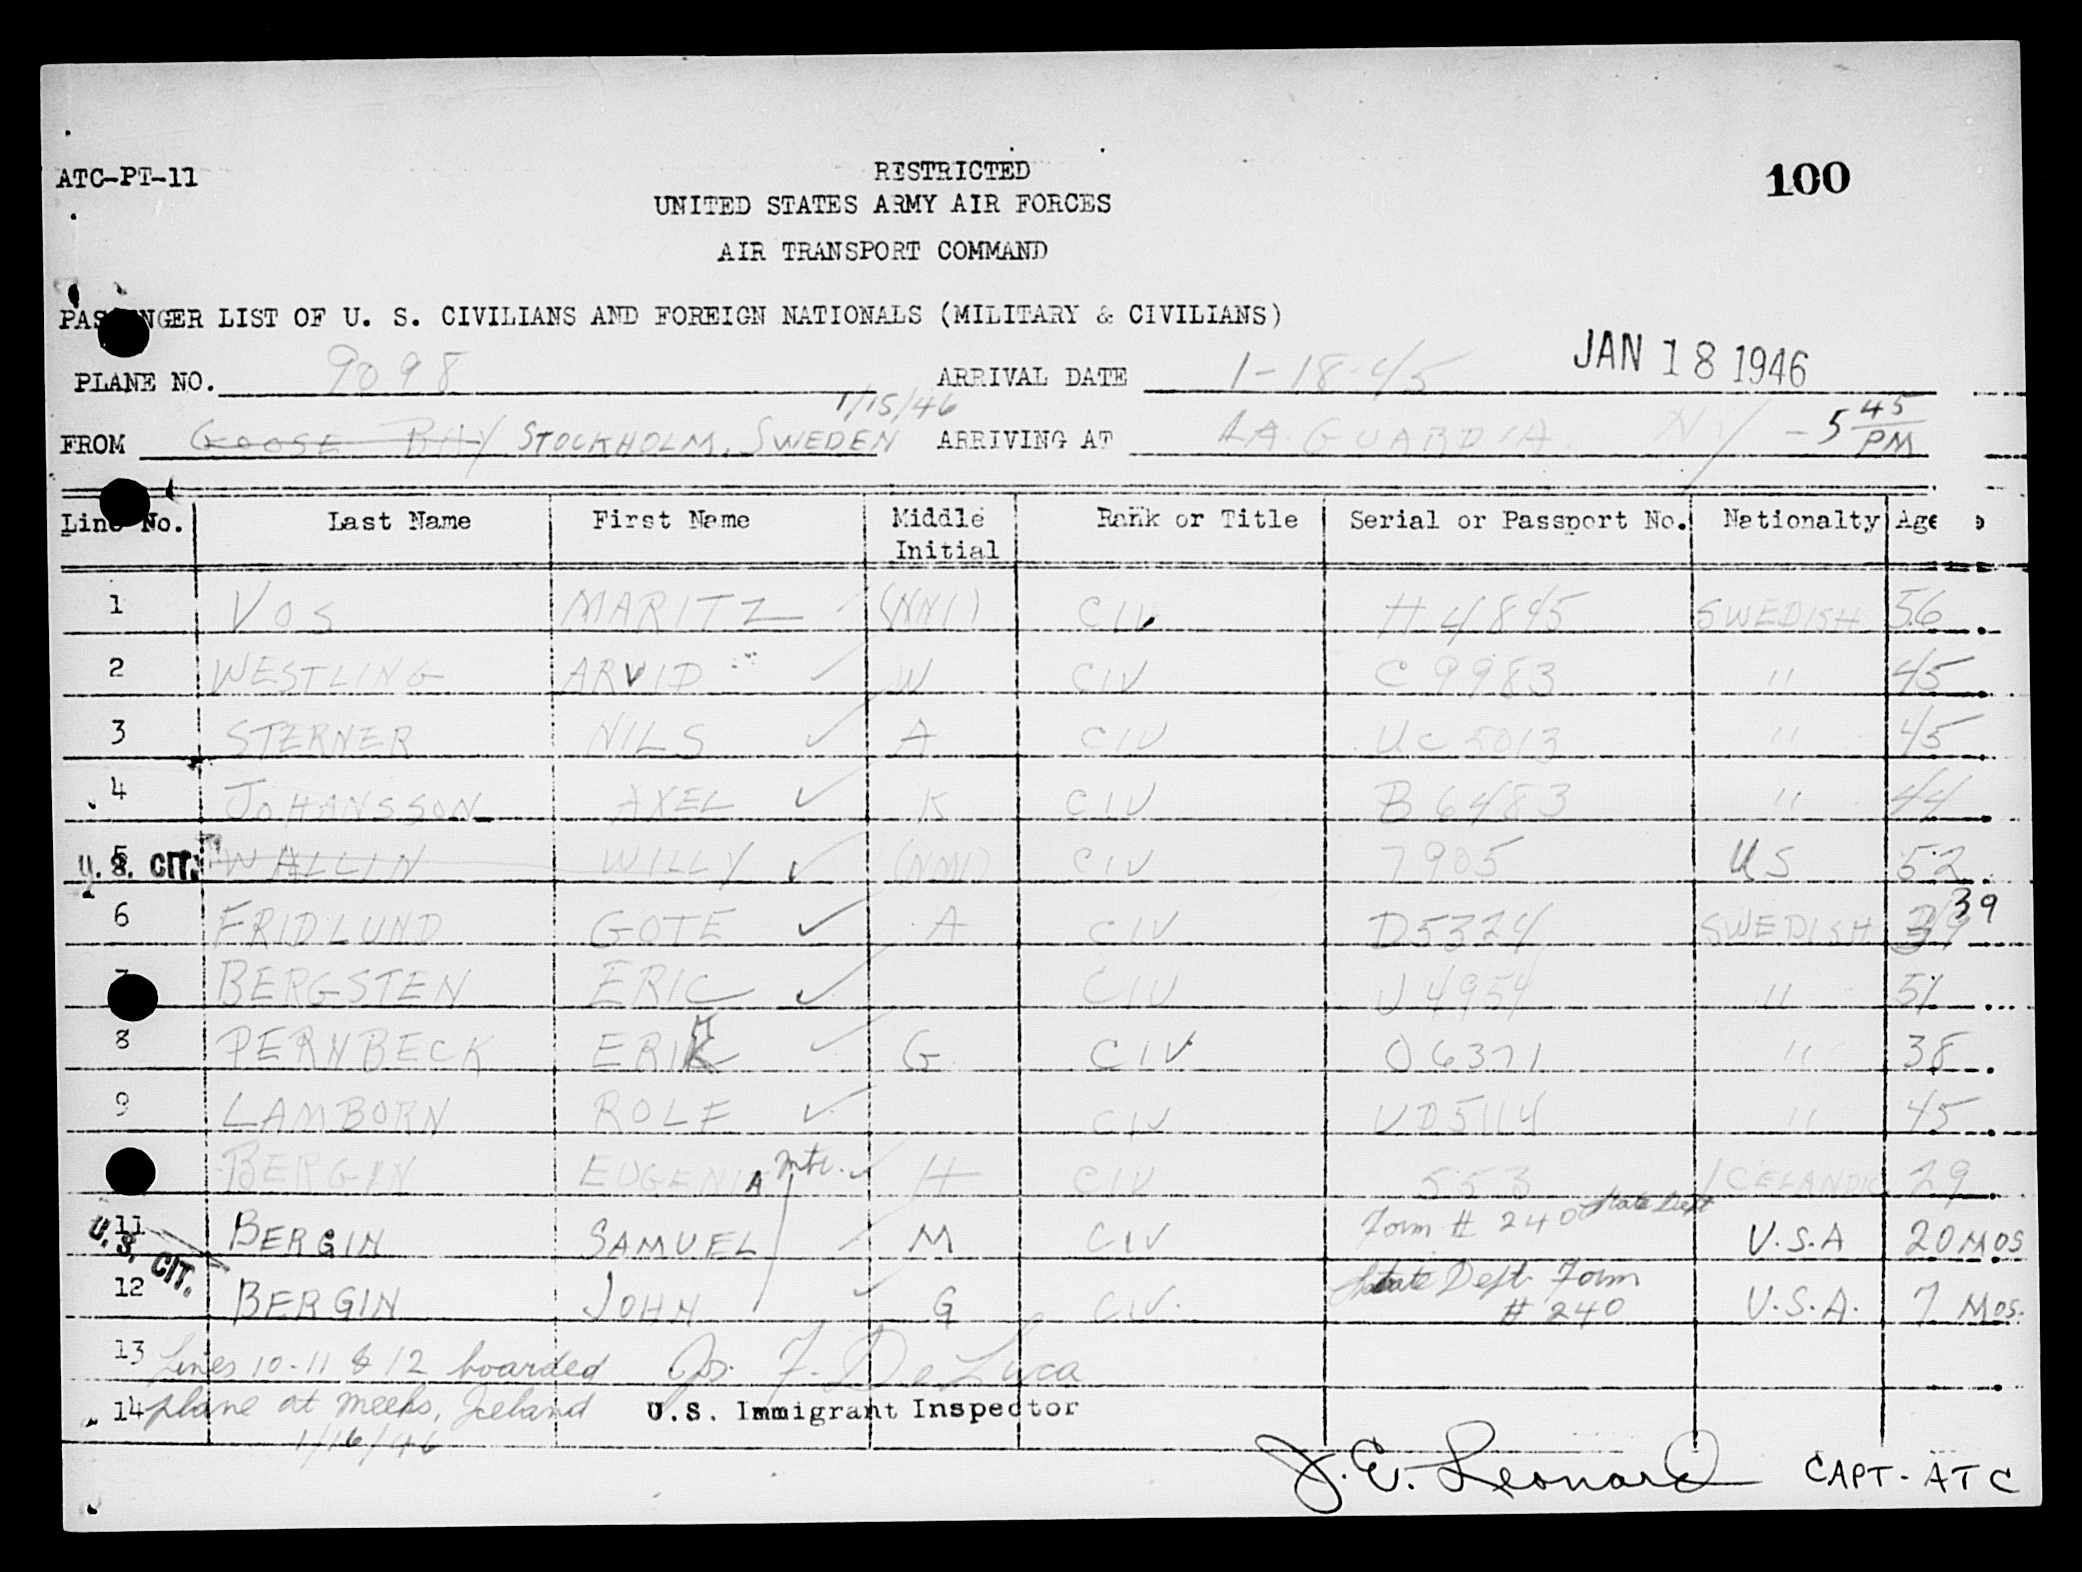 ATC-PT-11
RESTRICTED
100
UNITED STATES ARMY AIR FORCES
AIR TRANSPORT COMMAND
PASSENGER LIST OF U. S. CIVILIANS AND FOREIGN NATIONALS (MILITARY & CIVILIANS)
PLANE NO. 9098 ARRIVAL DATE 1-18-45 JAN 18 1946
1/15/46
FROM GOOSE BAY STOCKHOLM, SWEDEN ARRIVING AT LA GUARDIA NY - 5 45 PM
Line No. Last Name First Name Middle Initial Rank or Title Serial or Passport No. Nationalty Age
1 VOS MARITZ (NNI) CIV H 4845 SWEDISH 56
2 WESTLING ARVID W CIV C 9983 " 45
3 STERNER NILS A CIV UC 5013 " 45
4 JOHANSSON AXEL K CIV B 6483 " 44
U.S. CIT. 5 WALLIN WILLY (NMI) CIV 7905 US 52
6 FRIDLUND GOTE A CIV D5324 SWEDISH 39 39
7 BERGSTEN ERIC CIV U 4954 " 51
8 PERNBECK ERIK G CIV O 6371 " 38
9 LAMBORN ROLF CIV UD5114 " 45
BERGIN EUGENIA mtr. H CIV 553 ICELANDIC 29
U.S. CIT. 11 BERGIN SAMUEL M CIV Form # 240 State Dept U.S.A 20 MOS
12 BERGIN JOHN G CIV. State Dept. Form # 240 U.S.A. 7 MOS.
13 Lines 10-11 & 12 boarded Jos. F. De Luca
14 plane at Meeks, Iceland U.S. Immigrant Inspector
1/16/46
J. E. Leonard CAPT - ATC